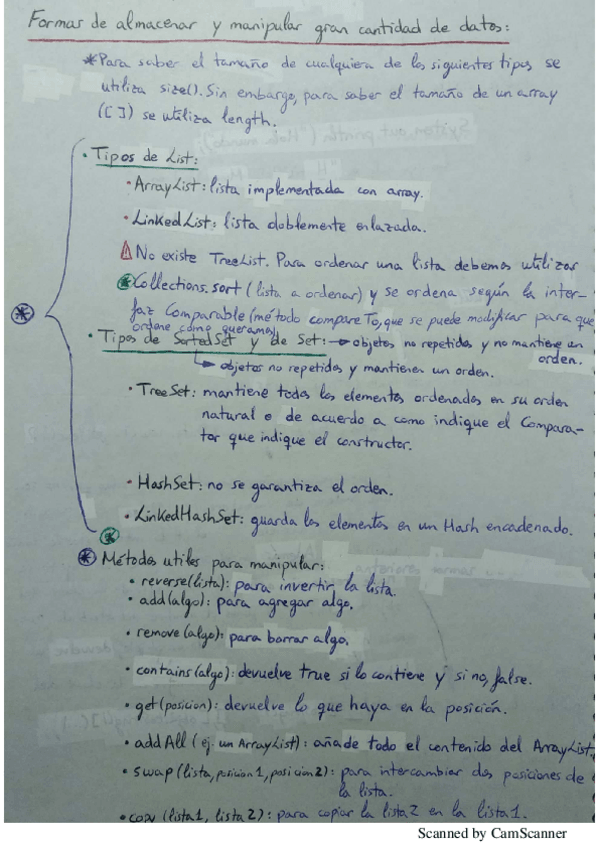 Formas de almacenar y manipular gran cantidad de datos:
*Para saber el tamaño de cualquiera de los siguientes tipos se
utiliza size(). Sin embargo, para saber el tamaño de un array
([ ]) se utiliza length.
• Tipos de List:
• ArrayList: lista implementada con array.
• LinkedList: lista doblemente enlazada.
⚠ No existe TreeList. Para ordenar una lista debemos utilizar
*Collections.sort (lista a ordenar) y se ordena según la inter-
faz Comparable (método compareTo, que se puede modificar para que
ordene como queramos)
• Tipos de SortedSet y de Set: → objetos no repetidos y no mantiene un
orden.
→ objetos no repetidos y mantienen un orden.
• TreeSet: mantiene todos los elementos ordenados en su orden
natural o de acuerdo a como indique el Compara-
tor que indique el constructor.
• HashSet: no se garantiza el orden.
• LinkedHashSet: guarda los elementos en un Hash encadenado.
* Métodos utiles para manipular:
• reverse(lista): para invertir la lista.
• add(algo): para agregar algo.
• remove(algo): para borrar algo.
• contains(algo): devuelve true si lo contiene y si no, false.
• get(posicion): devuelve lo que haya en la posición.
• addAll (ej. un ArrayList): añade todo el contenido del ArrayList.
• swap(lista, posicion1, posicion2): para intercambiar dos posiciones de
la lista.
• copy (lista1, lista2): para copiar la lista2 en la lista1.
Scanned by CamScanner